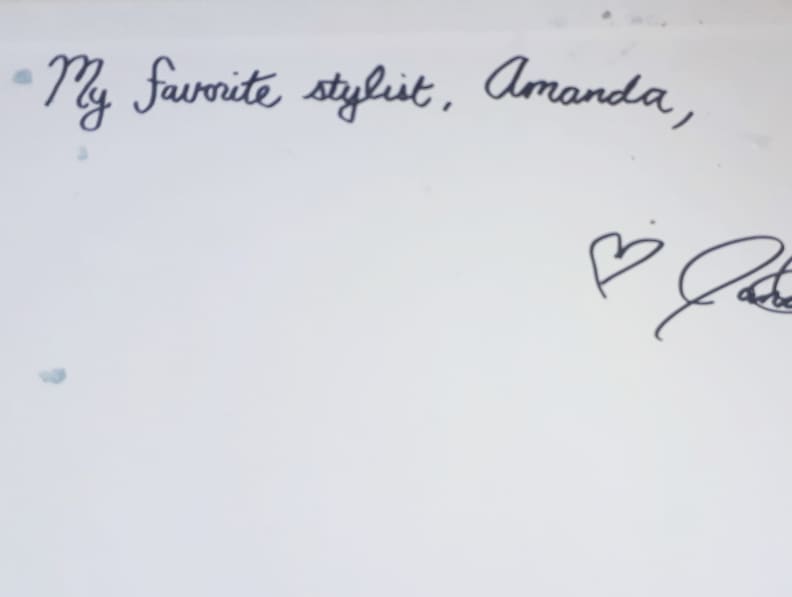 My favorite stylist, Amanda,